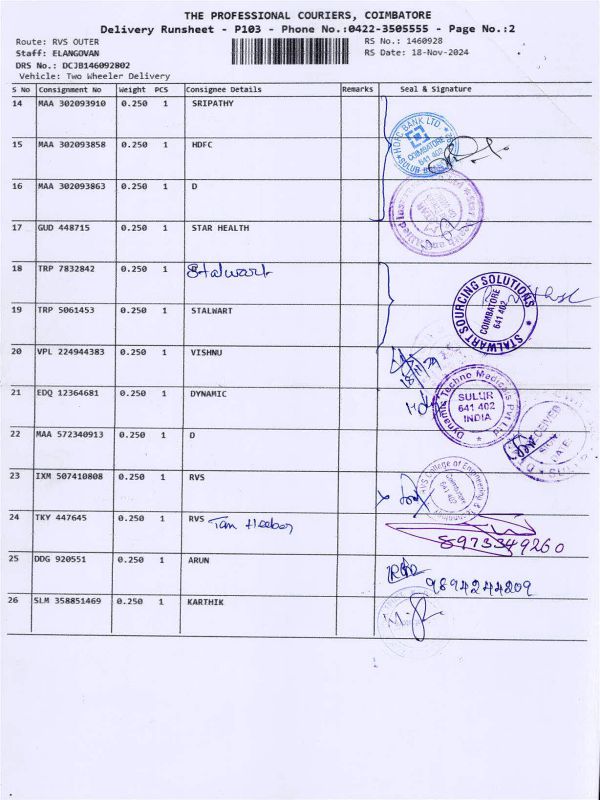 THE PROFESSIONAL COURIERS, COIMBATORE
Delivery Runsheet - P103 - Phone No.:0422-3505555 - Page No.:2
Route: RVS OUTER
RS No.: 1460928
Staff: ELANGOVAN
RS Date: 18-Nov-2024
DRS No.: DCJB146092802
Vehicle: Two Wheeler Delivery
S No Consignment No Weight PCS Consignee Details Remarks Seal & Signature
14 MAA 302093910 0.250 1 SRIPATHY
15 MAA 302093858 0.250 1 HDFC
HDFC BANK LTD
COIMBATORE
641 402
SULUR
16 MAA 302093863 0.250 1 D
17 GUD 448715 0.250 1 STAR HEALTH
18 TRP 7832842 0.250 1 Stalwart
19 TRP 5061453 0.250 1 STALWART
STALWART SOURCING SOLUTIONS
COIMBATORE
641 402
20 VPL 224944383 0.250 1 VISHNU
18/11/24
21 EDQ 12364681 0.250 1 DYNAMIC
Dynamic Techno Medicals Pvt Ltd
SULUR
641 402
INDIA
22 MAA 572340913 0.250 1 D
23 IXM 507410808 0.250 1 RVS
RVS College of Engineering &
Coimbatore
641 402
24 TKY 447645 0.250 1 RVS
8973349260
25 DDG 920551 0.250 1 ARUN
9894244209
26 SLM 358851469 0.250 1 KARTHIK